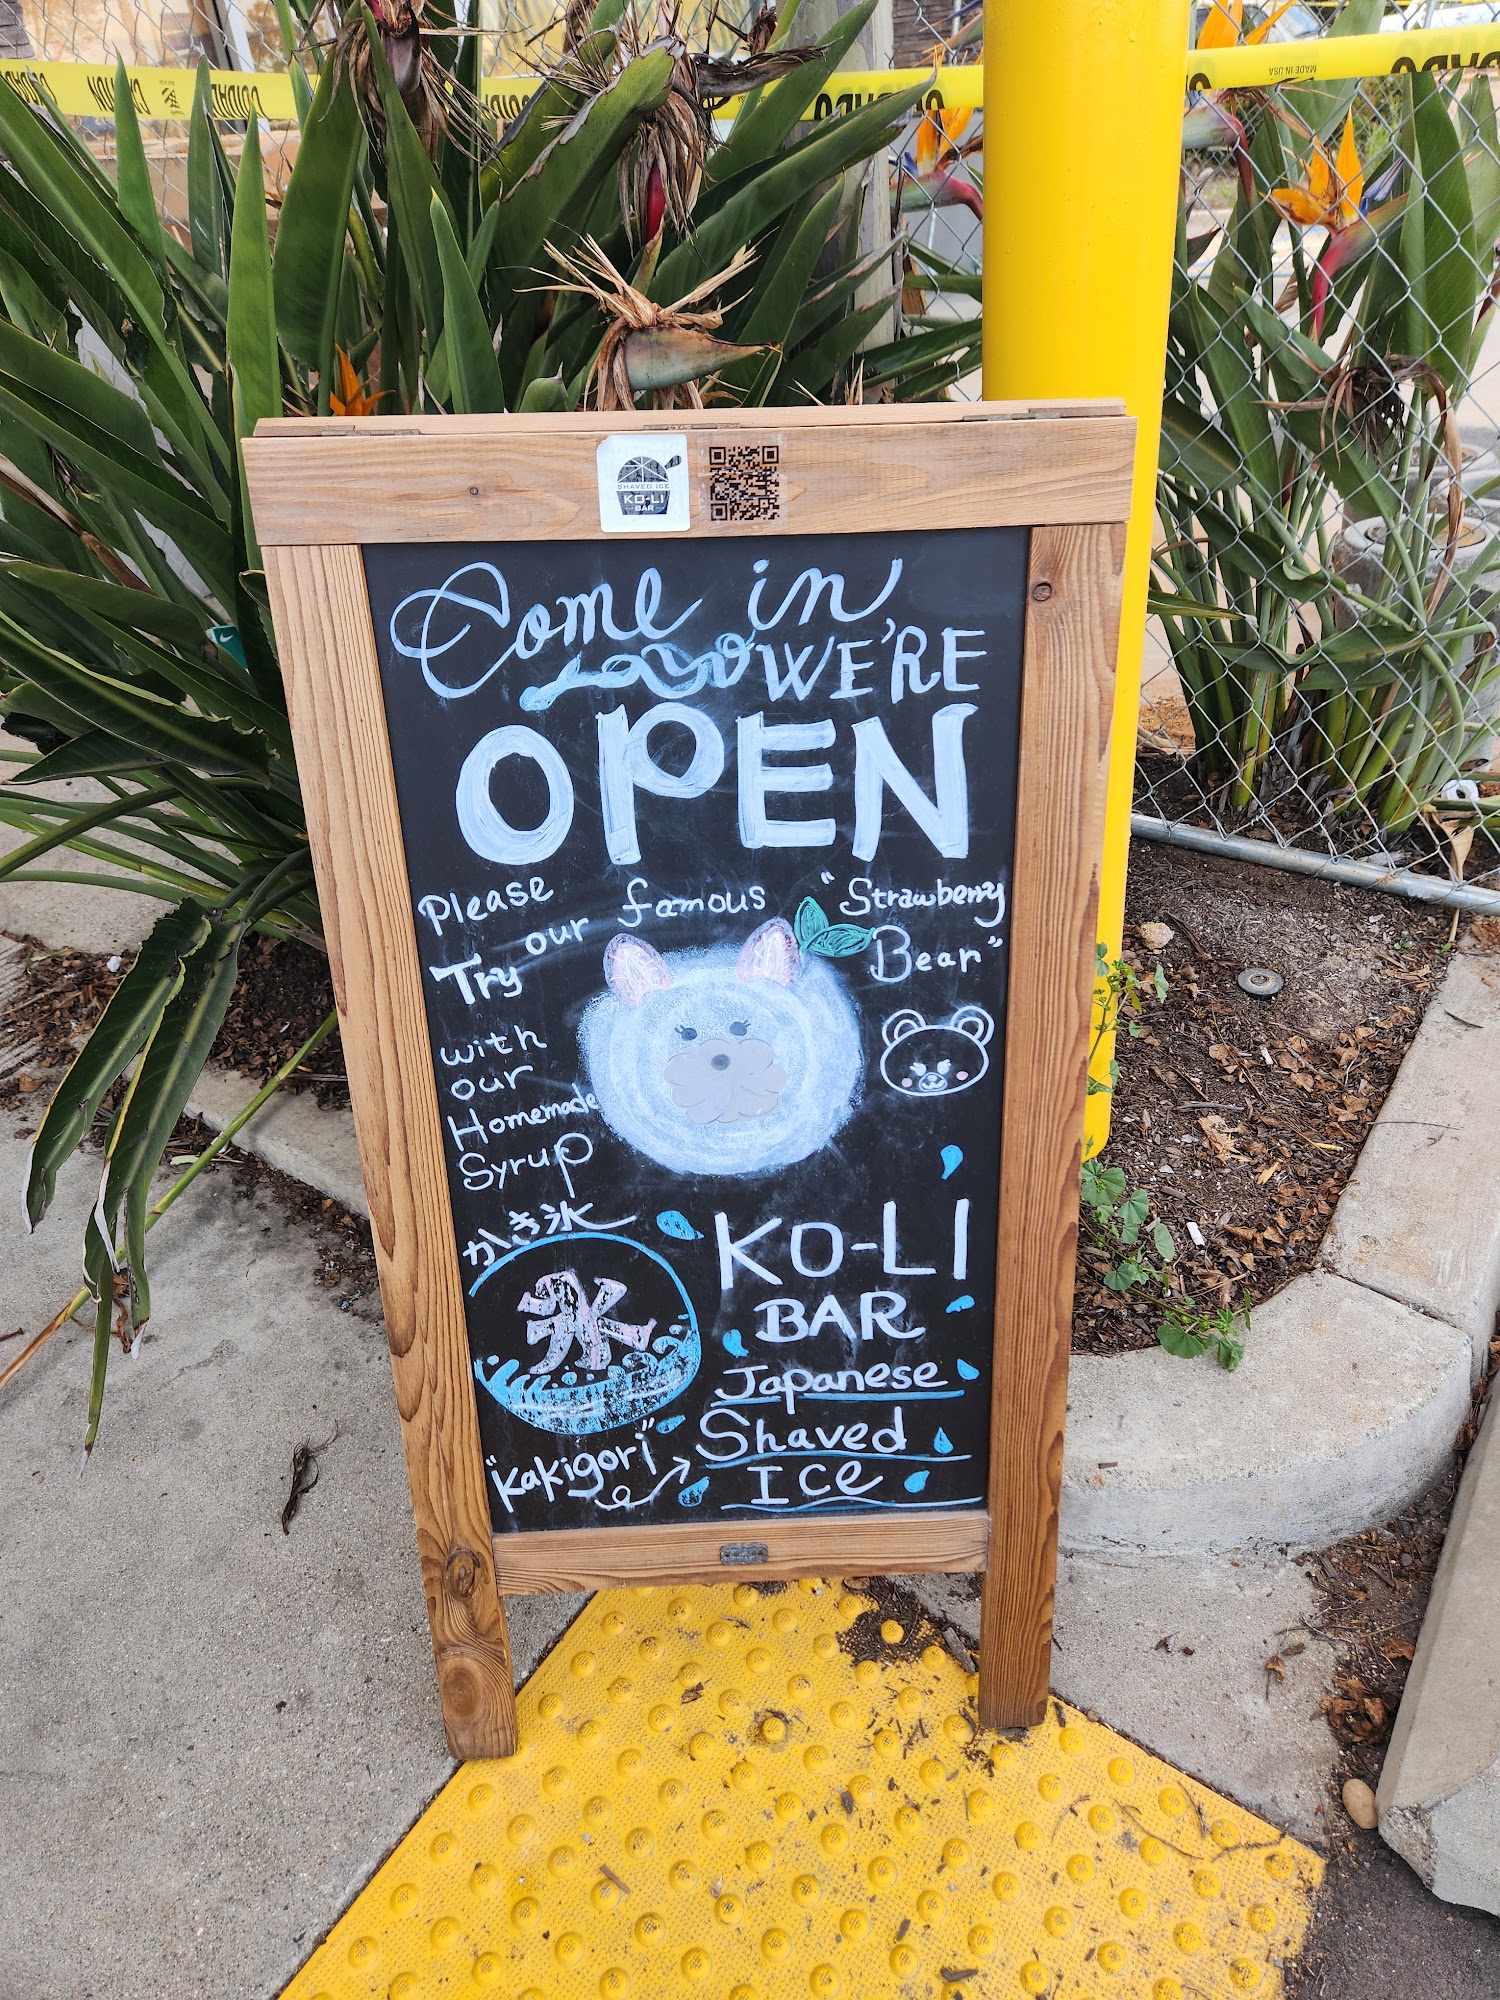 CAUTION
CUIDADO
CUIDADO
CUIDADO
MADE IN USA
CUIDADO
SHAVED ICE
KO-LI
BAR
Come in
WE'RE
OPEN
Please
Try
our famous "Strawberry
Bear"
with
our
Homemade
Syrup
かき氷
氷
"Kakigori"
KO-LI
BAR
Japanese
Shaved
ICe